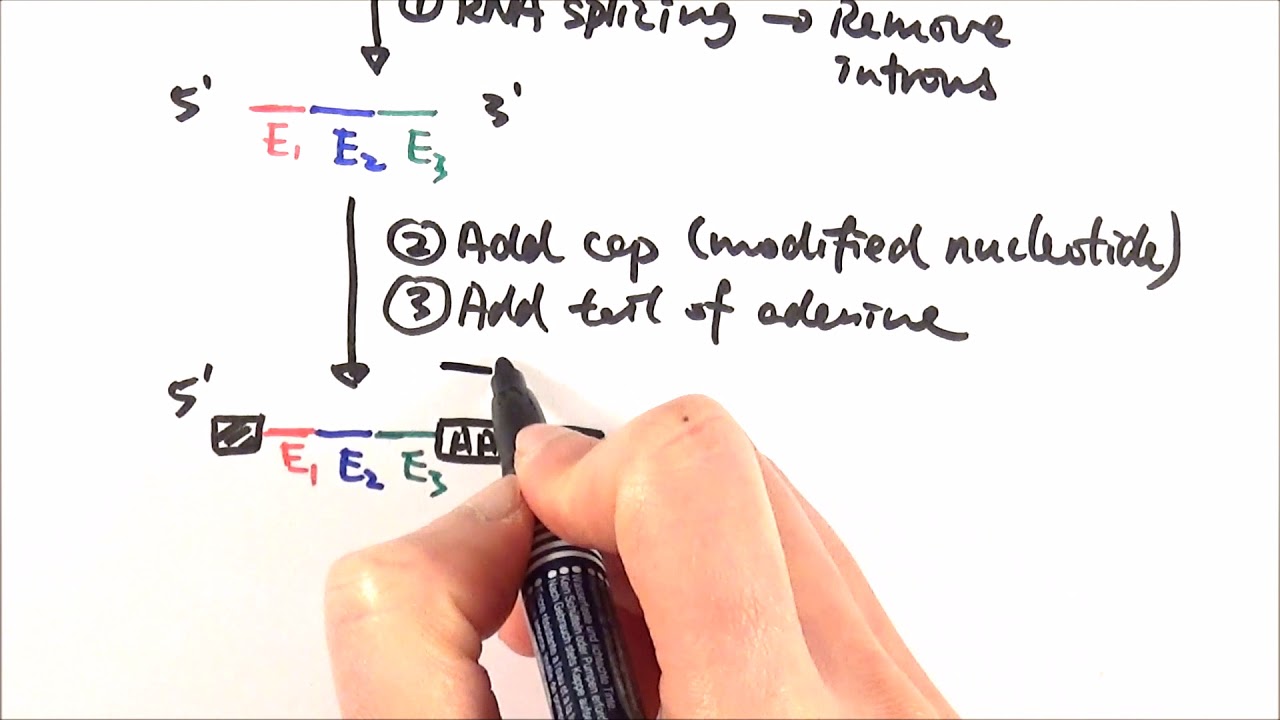 ① RNA splicing → Remove
introns
5' 3'
E1 E2 E3
② Add cap (modified nucleotide)
③ Add tail of adenine
5'
AA
E1 E2 E3